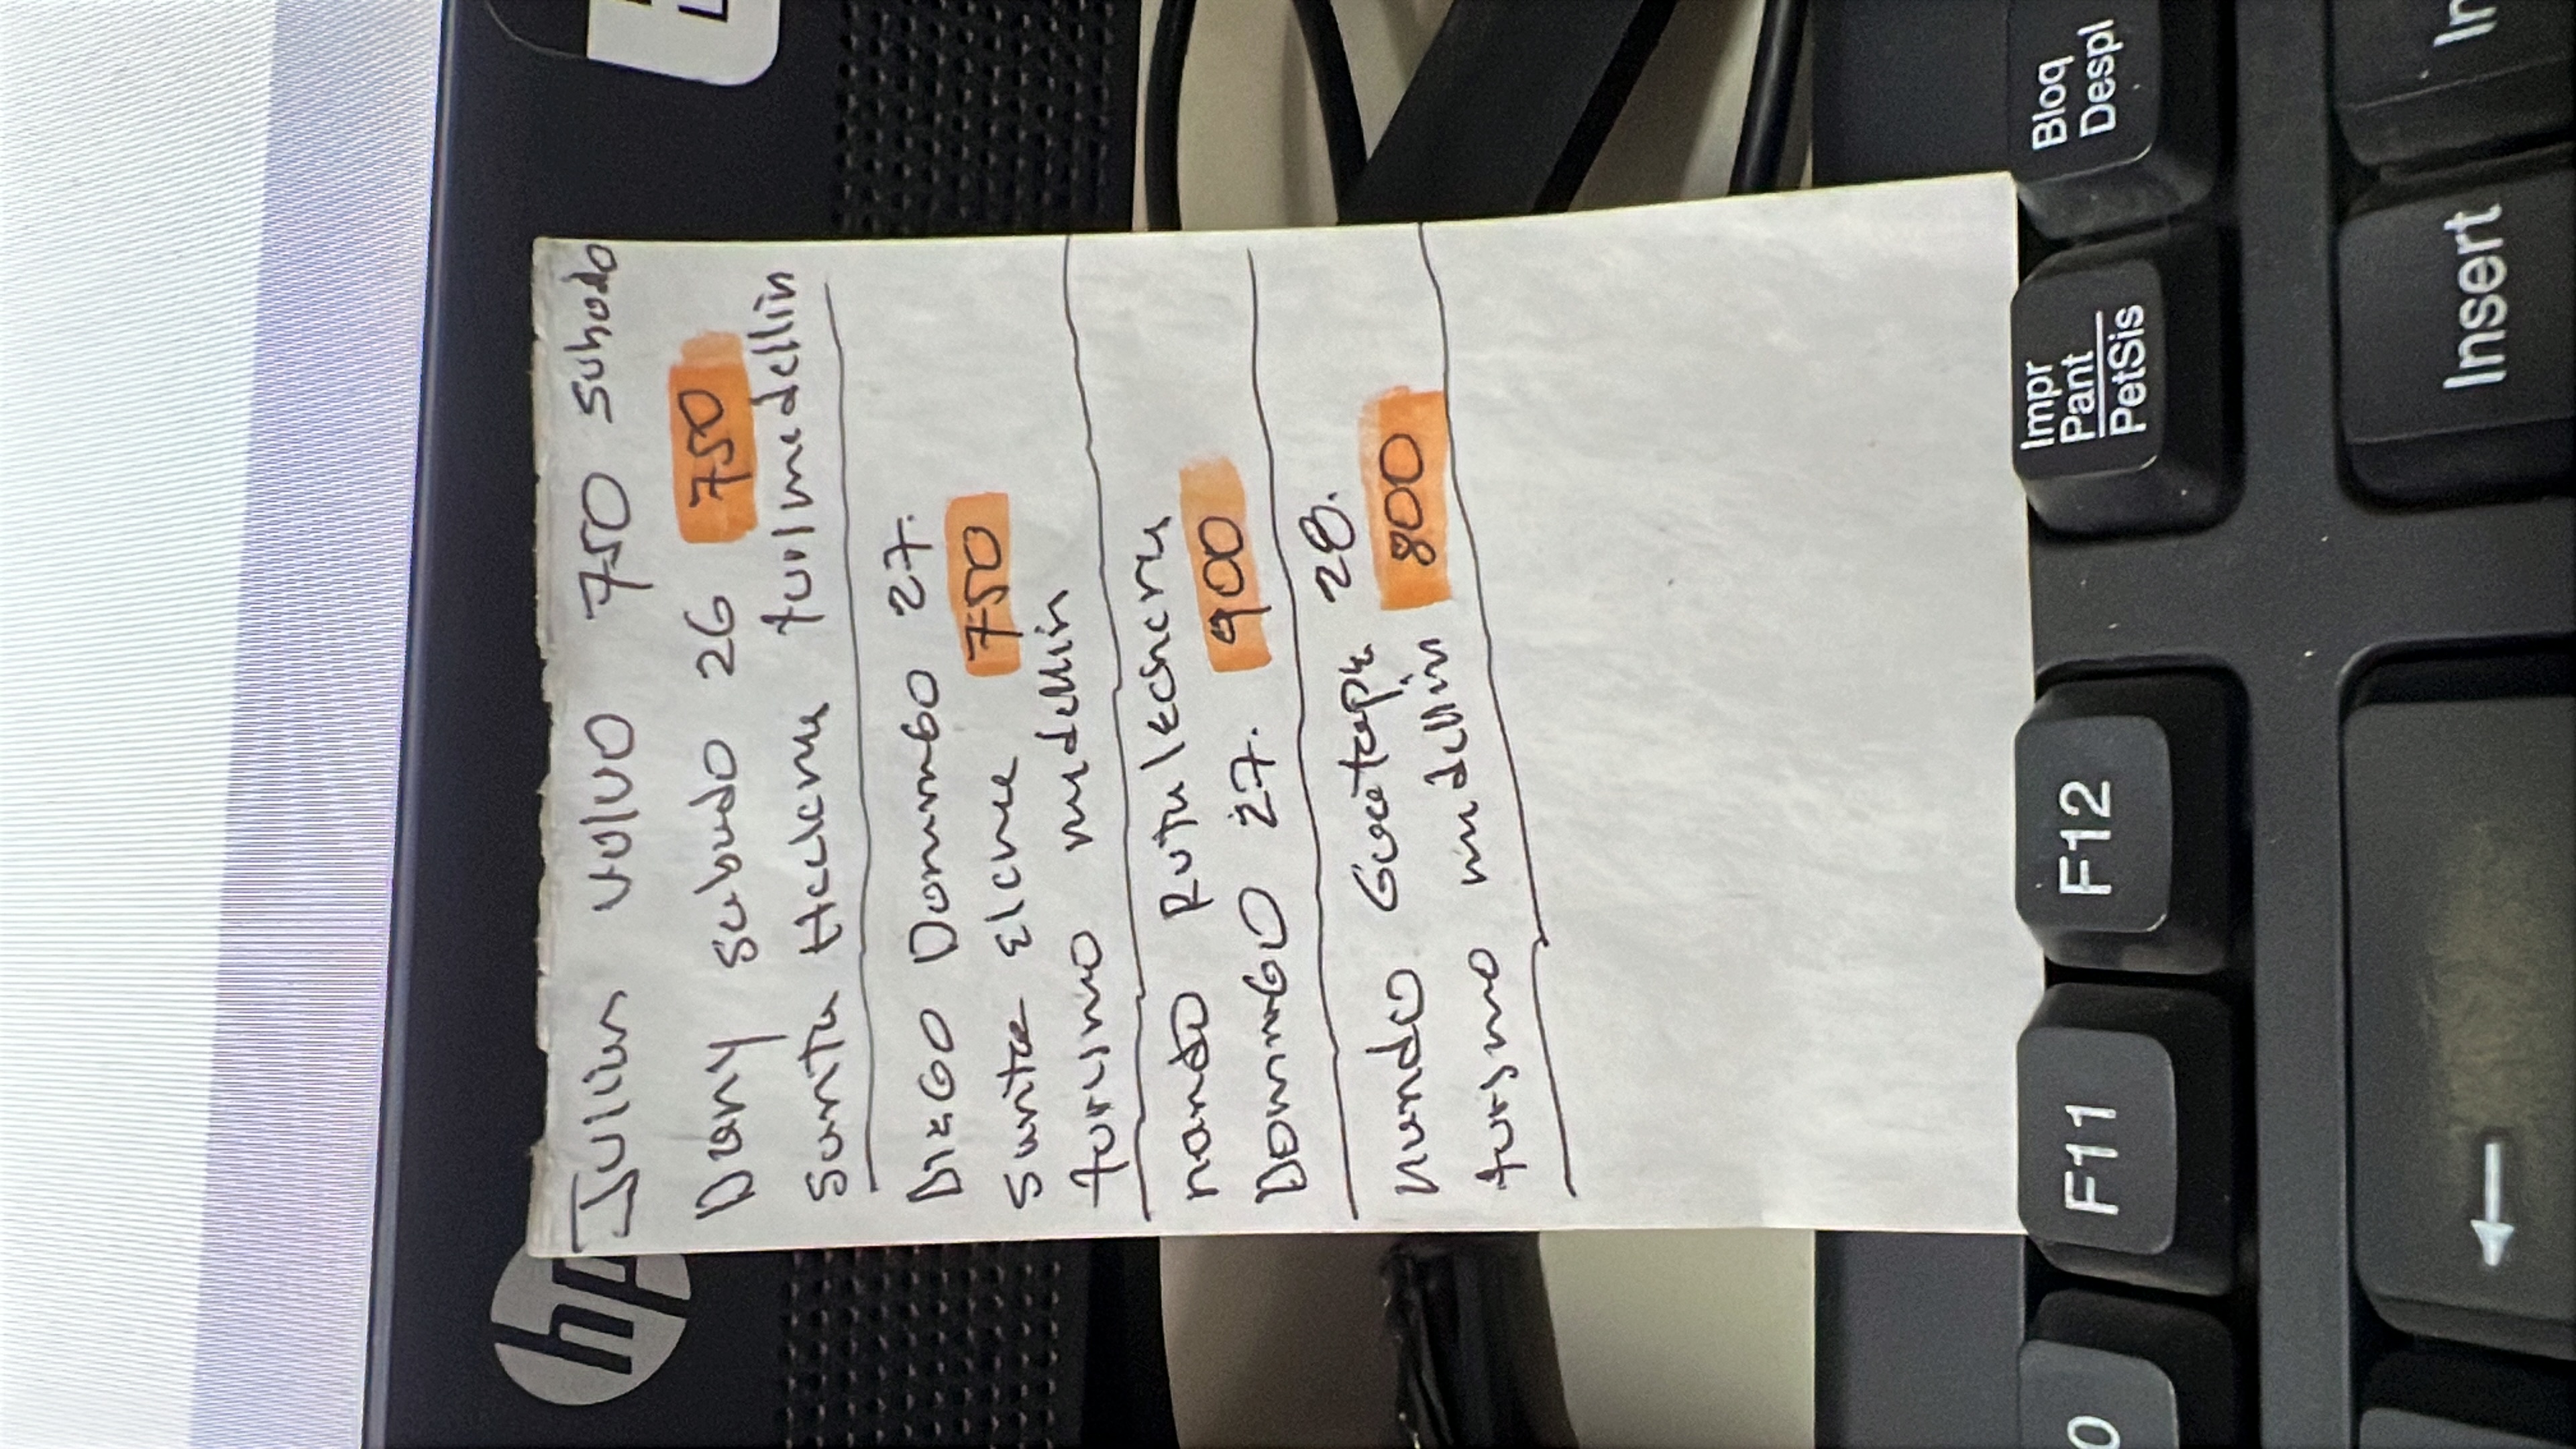 Julian volvo 750 subado
Dany sabado 26 750
Santa Helena turlmedellin
DIEGO Domingo 27.
Santa Elena 750
turismo medellin
nando Ruta lechera
Domingo 27. 900
nando Guatape 28.
turismo medellin 800
hp
Bloq
Despl
Impr
Pant
PetSis
Insert
In
F12
F11